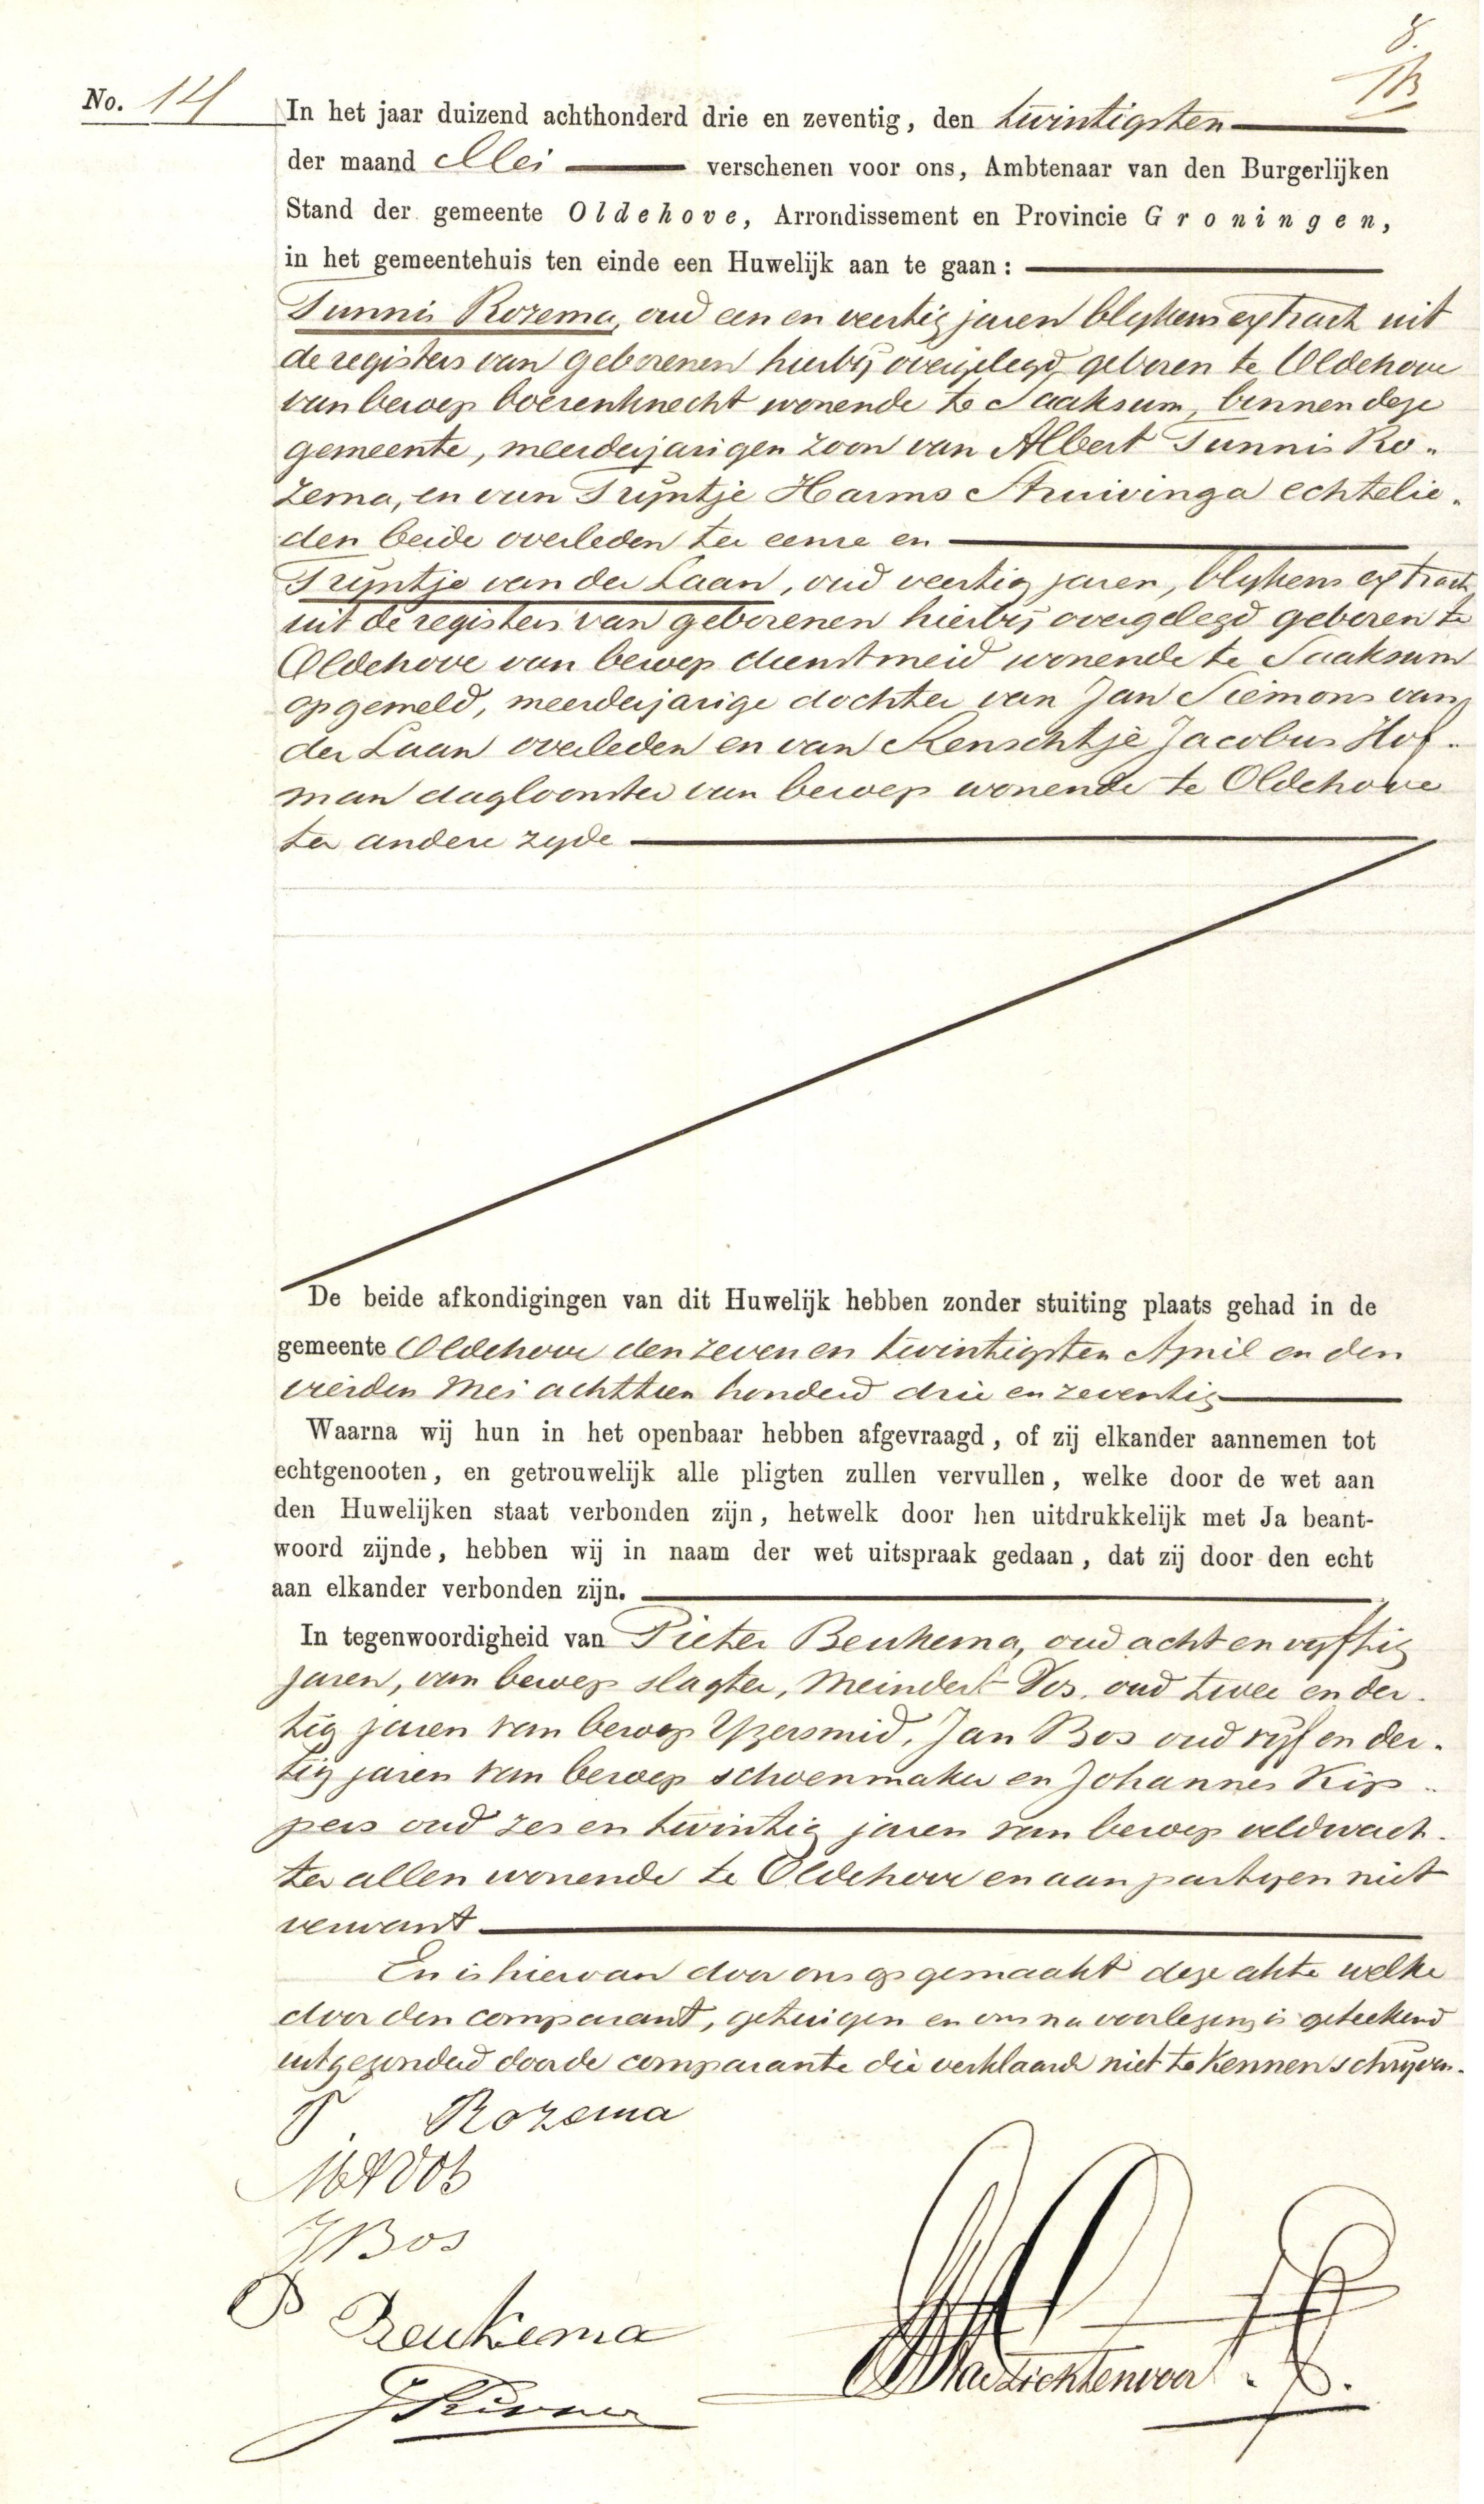 8.
No. 14
In het jaar duizend achthonderd drie en zeventig, den twintigsten
der maand Mei verschenen voor ons, Ambtenaar van den Burgerlijken
Stand der gemeente Oldehove, Arrondissement en Provincie Groningen,
in het gemeentehuis ten einde een Huwelijk aan te gaan:
Tunnis Rozema, oud een en veertig jaren blykens extract uit
de registers van geborenen hierbij overgelegd, geboren te Oldehove
van beroep boerenknecht wonende te Saaksum, binnen deze
gemeente, meerderjarigen zoon van Albert Tunnis Ro-
zema, en van Trijntje Harms Struivinga echtelie-
den beide overleden ter eenre en
Trijntje van der Laan, oud veertig jaren, blykens extract
uit de registers van geborenen hierbij overgelegd geboren te
Oldehove van beroep dienstmeid wonende te Saaksum
opgemeld, meerderjarige dochter van Jan Siemons van
der Laan overleden en van Kenschtje Jacobus Hof-
man dagloonster van beroep wonende te Oldehove
ter andere zyde
De beide afkondigingen van dit Huwelijk hebben zonder stuiting plaats gehad in de
gemeente Oldehove den zeven en twintigsten April en den
vierden Mei achttien honderd drie en zeventig
Waarna wij hun in het openbaar hebben afgevraagd, of zij elkander aannemen tot
echtgenooten, en getrouwelijk alle pligten zullen vervullen, welke door de wet aan
den Huwelijken staat verbonden zijn, hetwelk door hen uitdrukkelijk met Ja beant-
woord zijnde, hebben wij in naam der wet uitspraak gedaan, dat zij door den echt
aan elkander verbonden zijn.
In tegenwoordigheid van Pieter Beukema, oud acht en vyftig
jaren, van beroep slagter, Meindert Vos, oud twee en der-
tig jaren van beroep Yzersmid, Jan Bos oud vyf en der-
tig jaren van beroep schoenmaker en Johannes Kip-
pers oud zes en twintig jaren van beroep veldwach-
ter allen wonende te Oldehove en aan partyen niet
verwant
En is hiervan door ons opgemaakt deze akte welke
door den comparant, getuigen en ons na voorlezing is geteekend
uitgezonderd door de comparante die verklaarde niet te kennen schrijven.
T Rozema
M Vos
J Bos
P Beukema